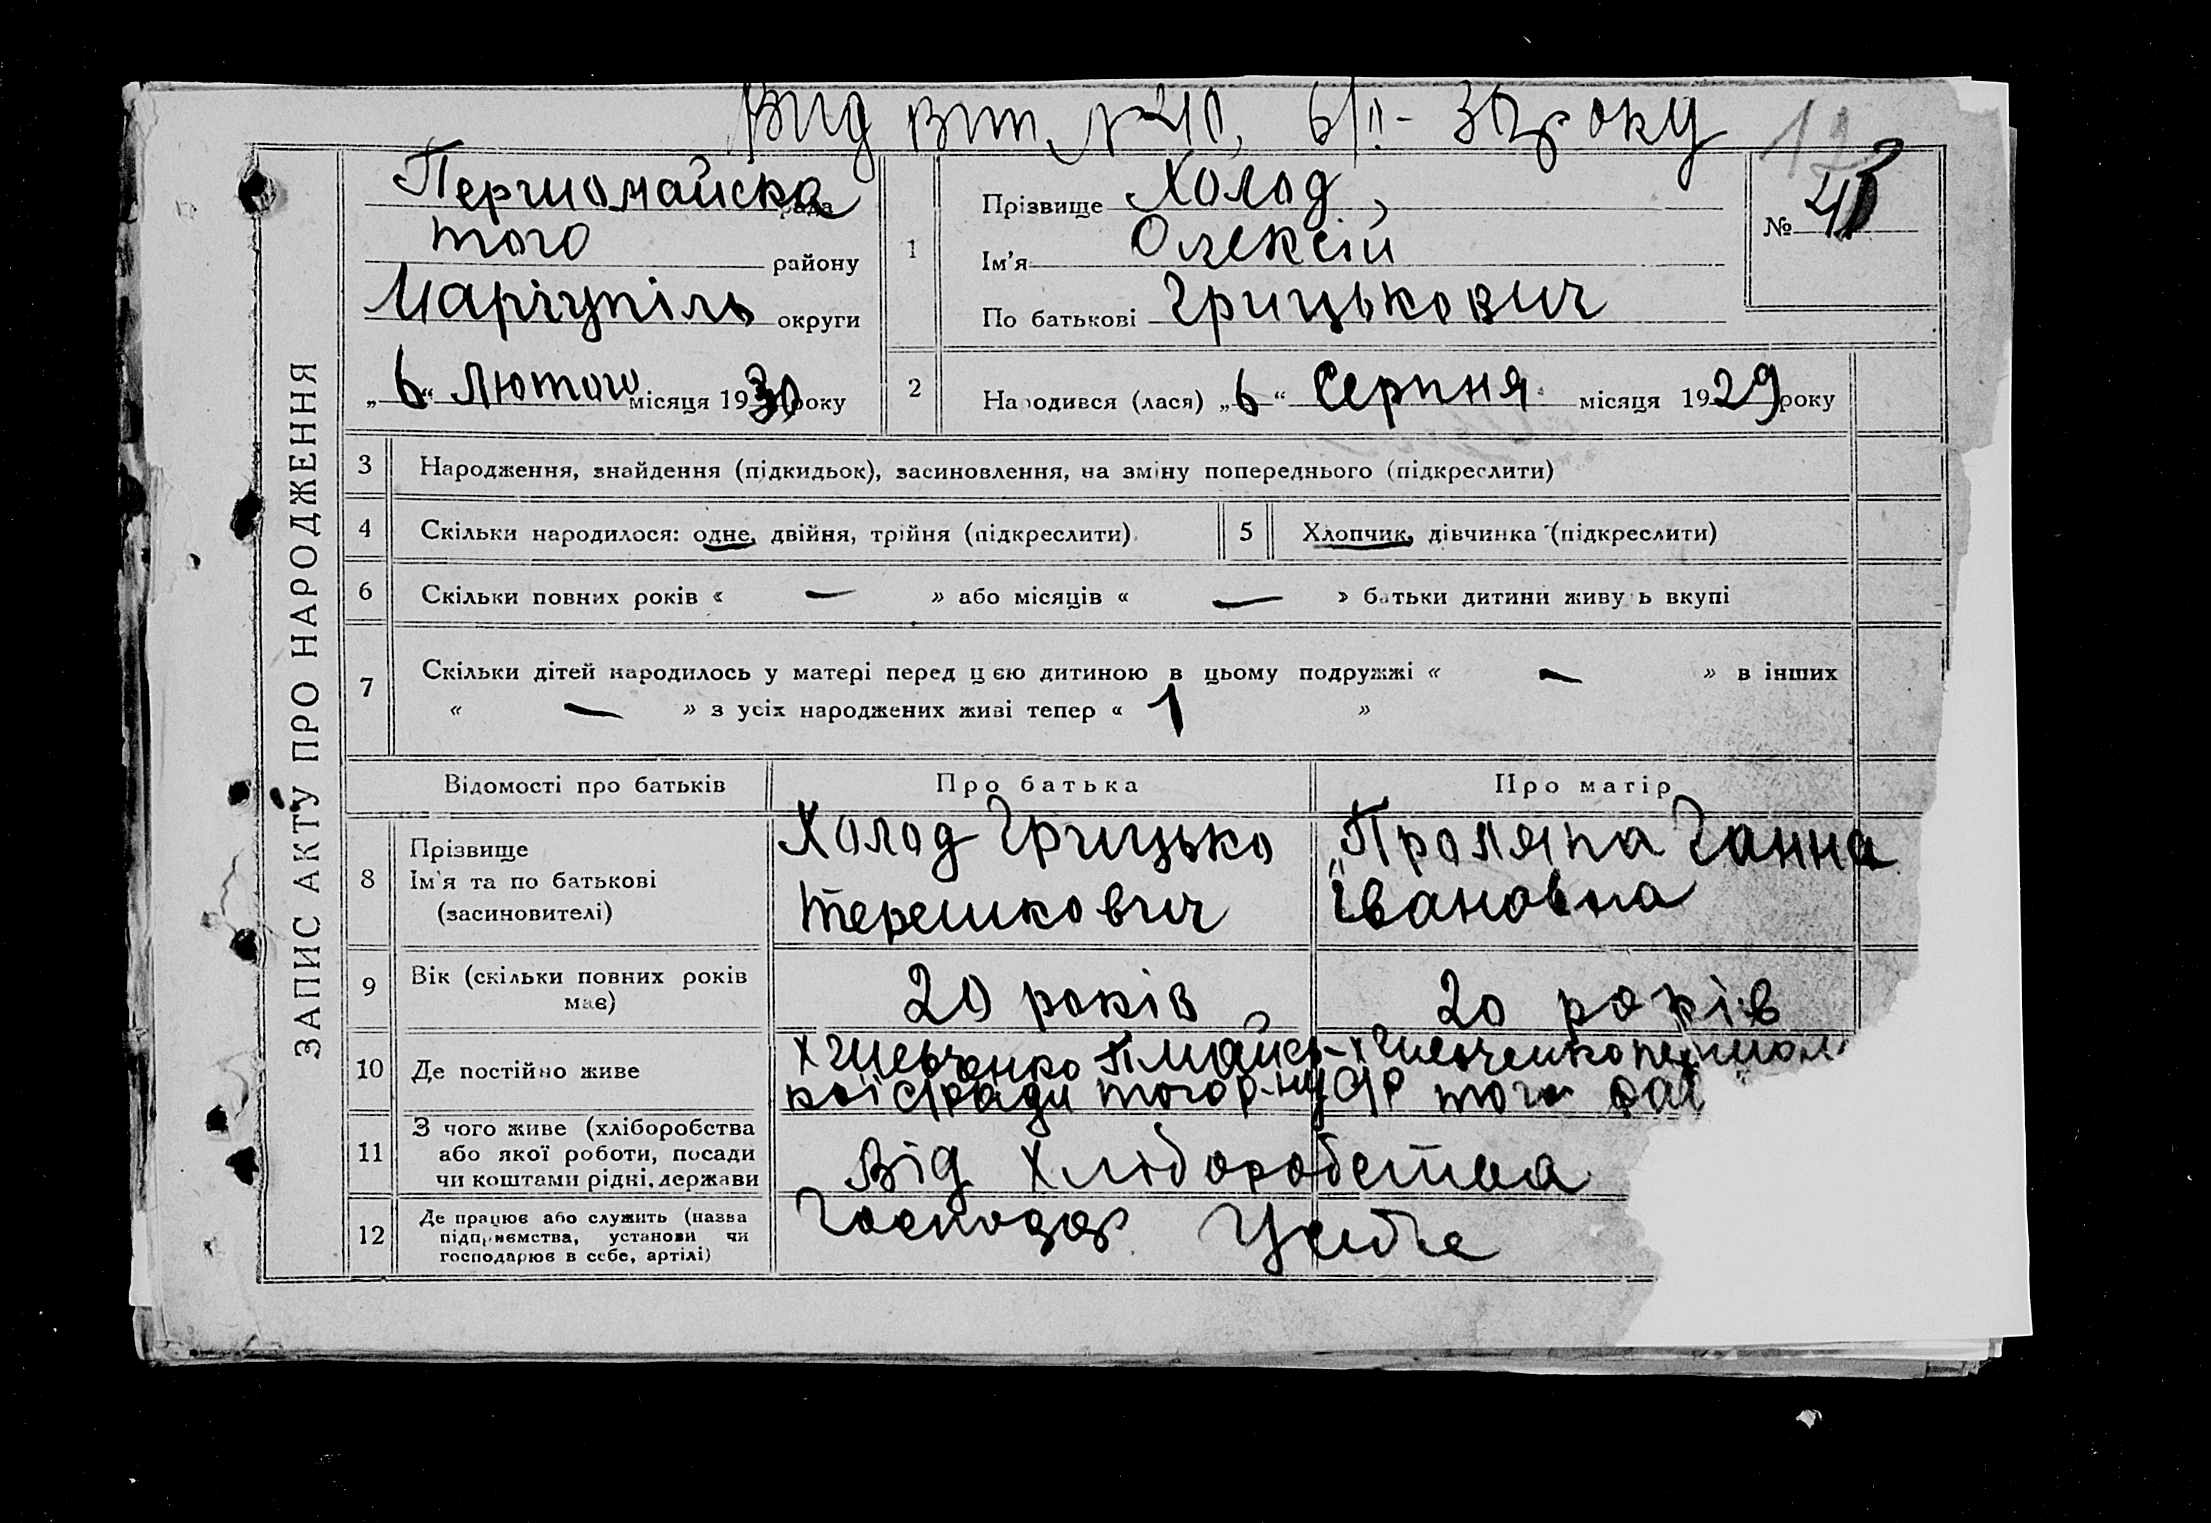 Вид вит №40, 6/II - 30 року
Першомайска рада
того району
Маріупіль округи
„6“ Лютого місяця 1930 року
ЗАПИС АКТУ ПРО НАРОДЖЕННЯ
1
Прізвище Холод,
Ім’я Олексій
По батькові Грицькович
№ 40
2
Народився (лася) „6“ Серпня місяця 1929 року
3 Народження, знайдення (підкидьок), засиновлення, на зміну попереднього (підкреслити)
4 Скільки народилося: одне, двійня, трійня (підкреслити)
5 Хлопчик, дівчинка (підкреслити)
6 Скільки повних років « — » або місяців « — » батьки дитини живуть вкупі
7 Скільки дітей народилось у матері перед цією дитиною в цьому подружжі « — » в інших
« — » з усіх народжених живі тепер « 1 »
Відомості про батьків Про батька Про матір
8
Прізвище
Ім’я та по батькові
(засиновителі)
Холод Грицько
Терешкович
Ганна
Івановна
9
Вік (скільки повних років
має)
20 років
20 років
10 Де постійно живе
11
З чого живе (хліборобства
або якої роботи, посади
чи коштами рідні, держави
Від хліборобства
12
Де працює або служить (назва
підприємства, установи чи
господарює в себе, артілі)
Господар У себе